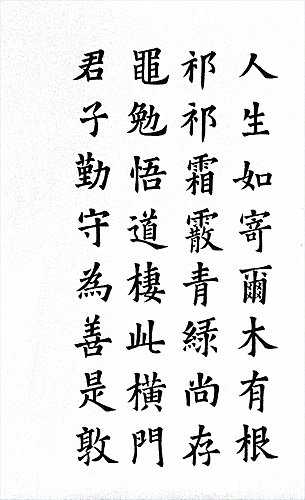 人生如寄爾木有根
祁祁霜霰青綠尚存
黽勉悟道棲此橫門
君子勤守為善是敦